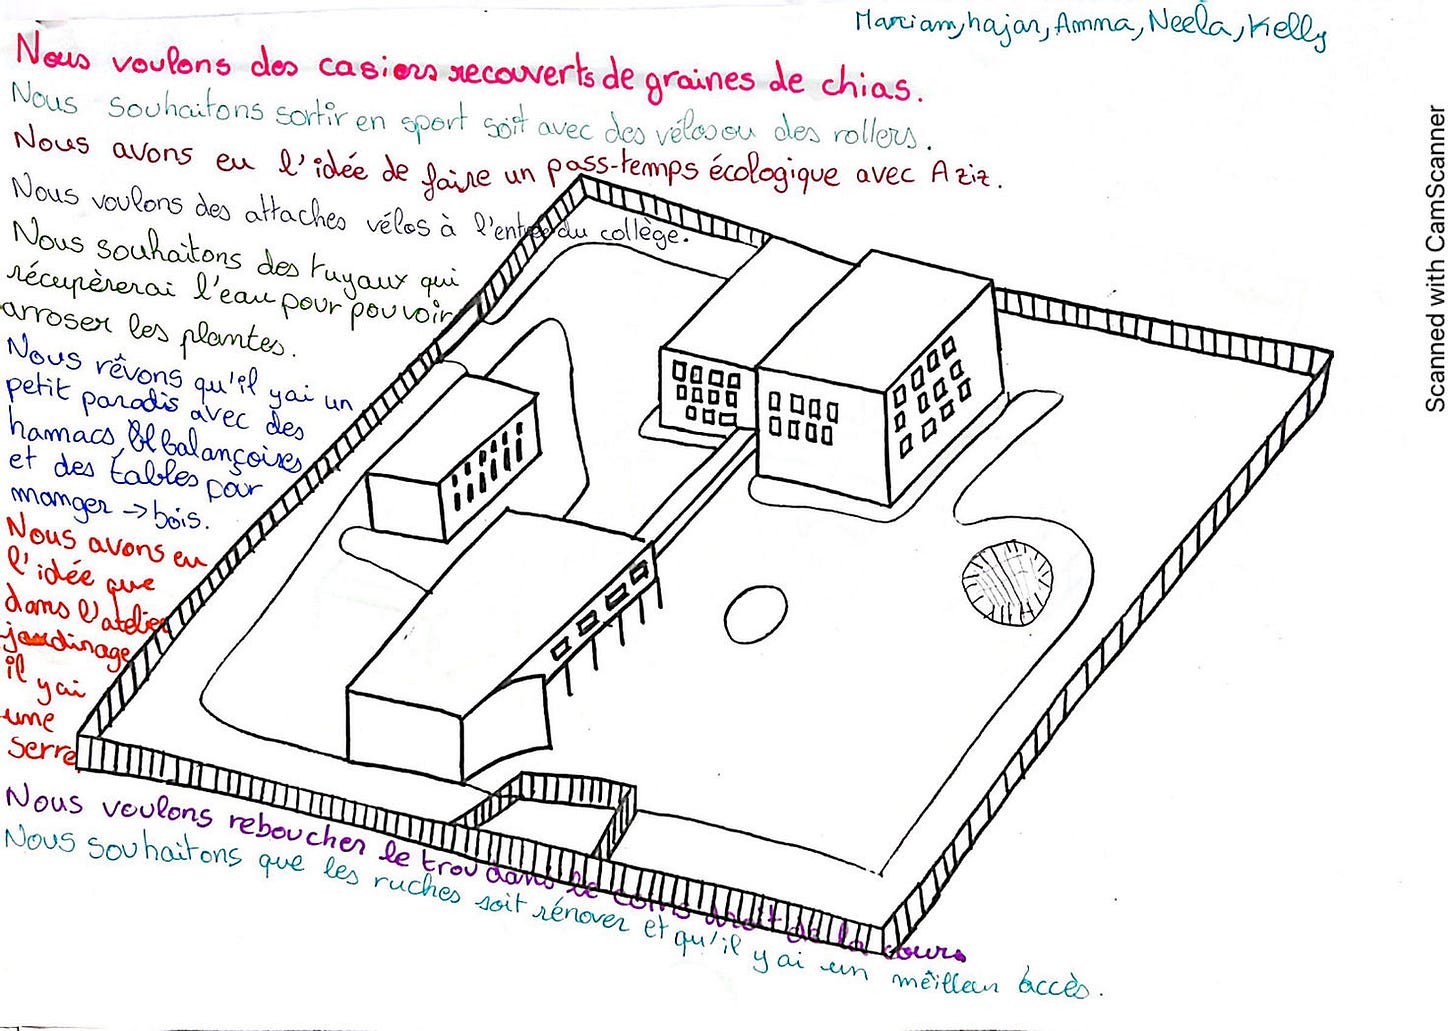 Mariam, hajar, Amma, Neela, Kelly
Nous voulons des casiers recouverts de graines de chias.
Nous souhaitons sortir en sport soit avec des vélos ou des rollers.
Nous avons eu l'idée de faire un pass-temps écologique avec Aziz.
Nous voulons des attaches vélos à l'entrée du collège.
Nous souhaitons des tuyaux qui
récupèrerai l'eau pour pouvoir
arroser les plantes.
Nous rêvons qu'il yai un
petit paradis avec des
hamacs balançoires
et des tables pour
manger → bois.
Nous avons eu
l'idée que
dans l'atelier
jardinage
il yai
une
serre
Nous voulons reboucher le trou dans le coins droit de la cours
Nous souhaitons que les ruches soit rénover et qu'il y ai un meilleur accès.
Scanned with CamScanner